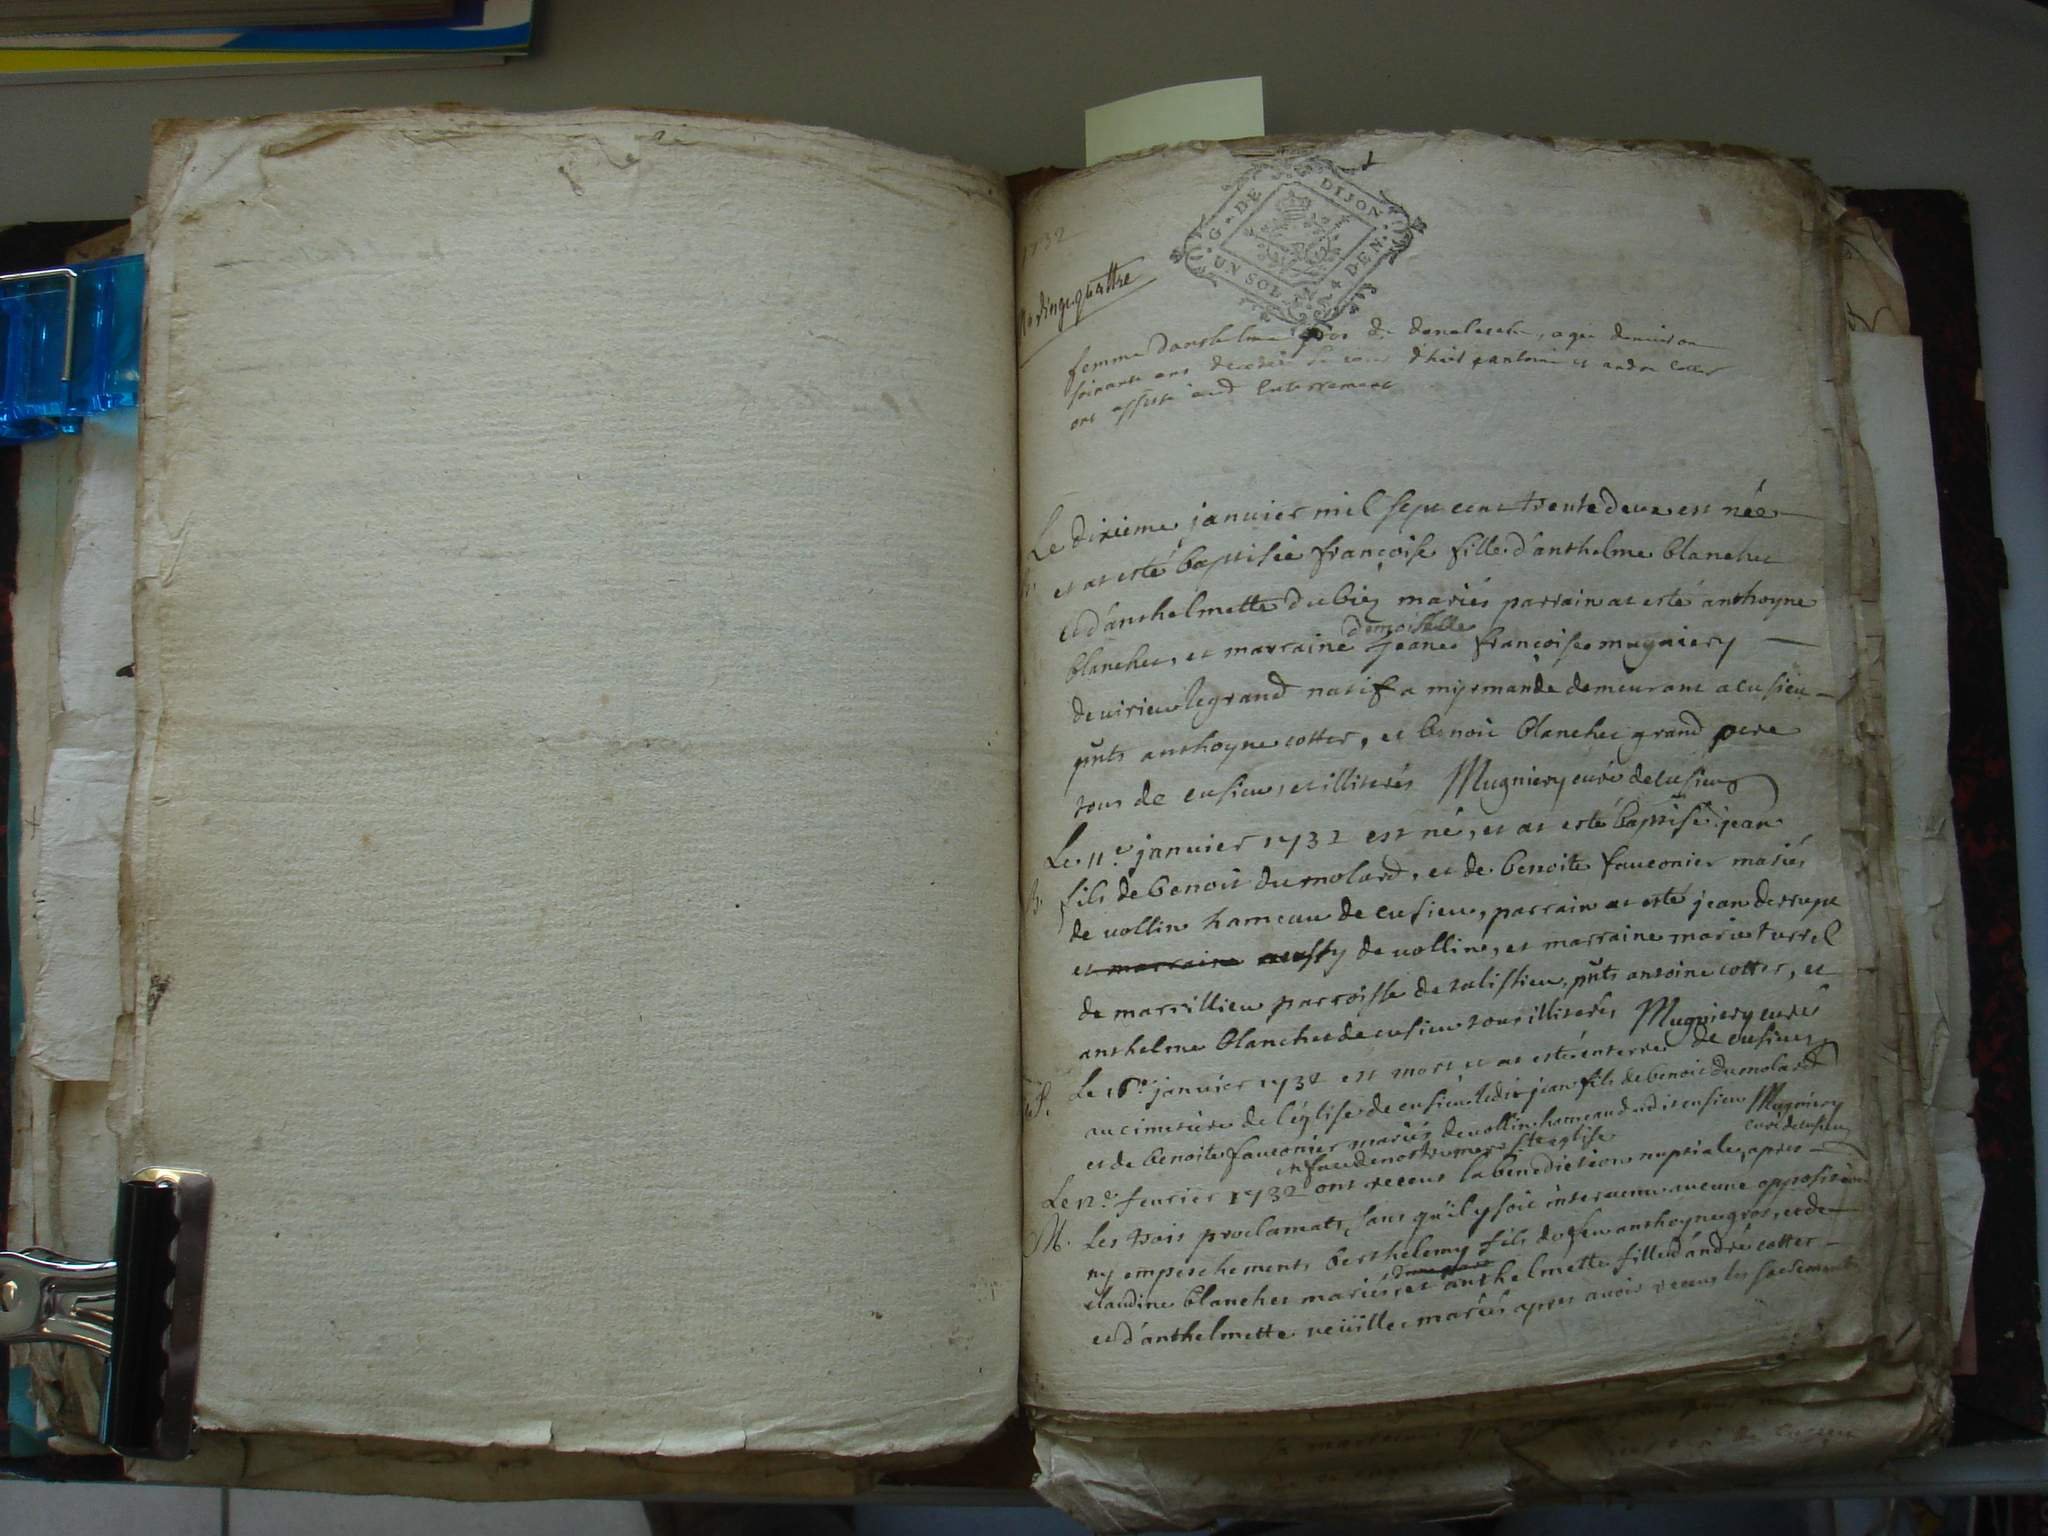 1732
G. DE DIJON
UN SOL. DEN.
vingt quattre
femme d'anthelme gros de agée d'environ
soixante ans et andre cotter
ont assisté aud enterrement
Le dixieme janvier mil sept cent trente deux est née
et at esté baptisée françoise fille d'anthelme blanchet
et d'anthelmette dubiez mariés parrain at esté anthoyne
blanchet, et marraine demoiselle jeane françoise mugniery
de virieu le grand natif a mirmande demeurant a cusieu
pnts anthoyne cotter, et benoit blanchet grand pere
tous de cusieu, et illiterés Mugniery curé de cusieu
Le 11e janvier 1732 est né, et at esté baptisé jean
B. fils de benoit dumolard, et de benoite fauconier mariés
de vollin hameau de cusieu, parrain at esté jean derrupt
et marraine aussy de vollin, et marraine marie turrel
de marsillieu parroisse de talissieu, pnts antoine cotter, et
anthelme blanchet de cusieu tous illiterés Mugniery curé
de cusieu
Le 16e janvier 1732 est mort et at esté enterré
au cimetiere de l'église de cusieu ledit jean fils de benoit dumolard
et de benoite fauconier mariés de vollin hameau dudit cusieu Mugniery
curé de cusieu
en face de nostre mere ste eglise
Le 12e fevrier 1732 ont receus la benediction nuptiale, apres
M. les trois proclamats, sans qu'il y soit intervenu aucune opposition
ny empeschements berthelemy fils de feu anthoyne gros, et de
claudine blanchet mariés, et anthelmette fille d'andré cotter
et d'anthelmette reüille mariés apres avoir receus les sacrements